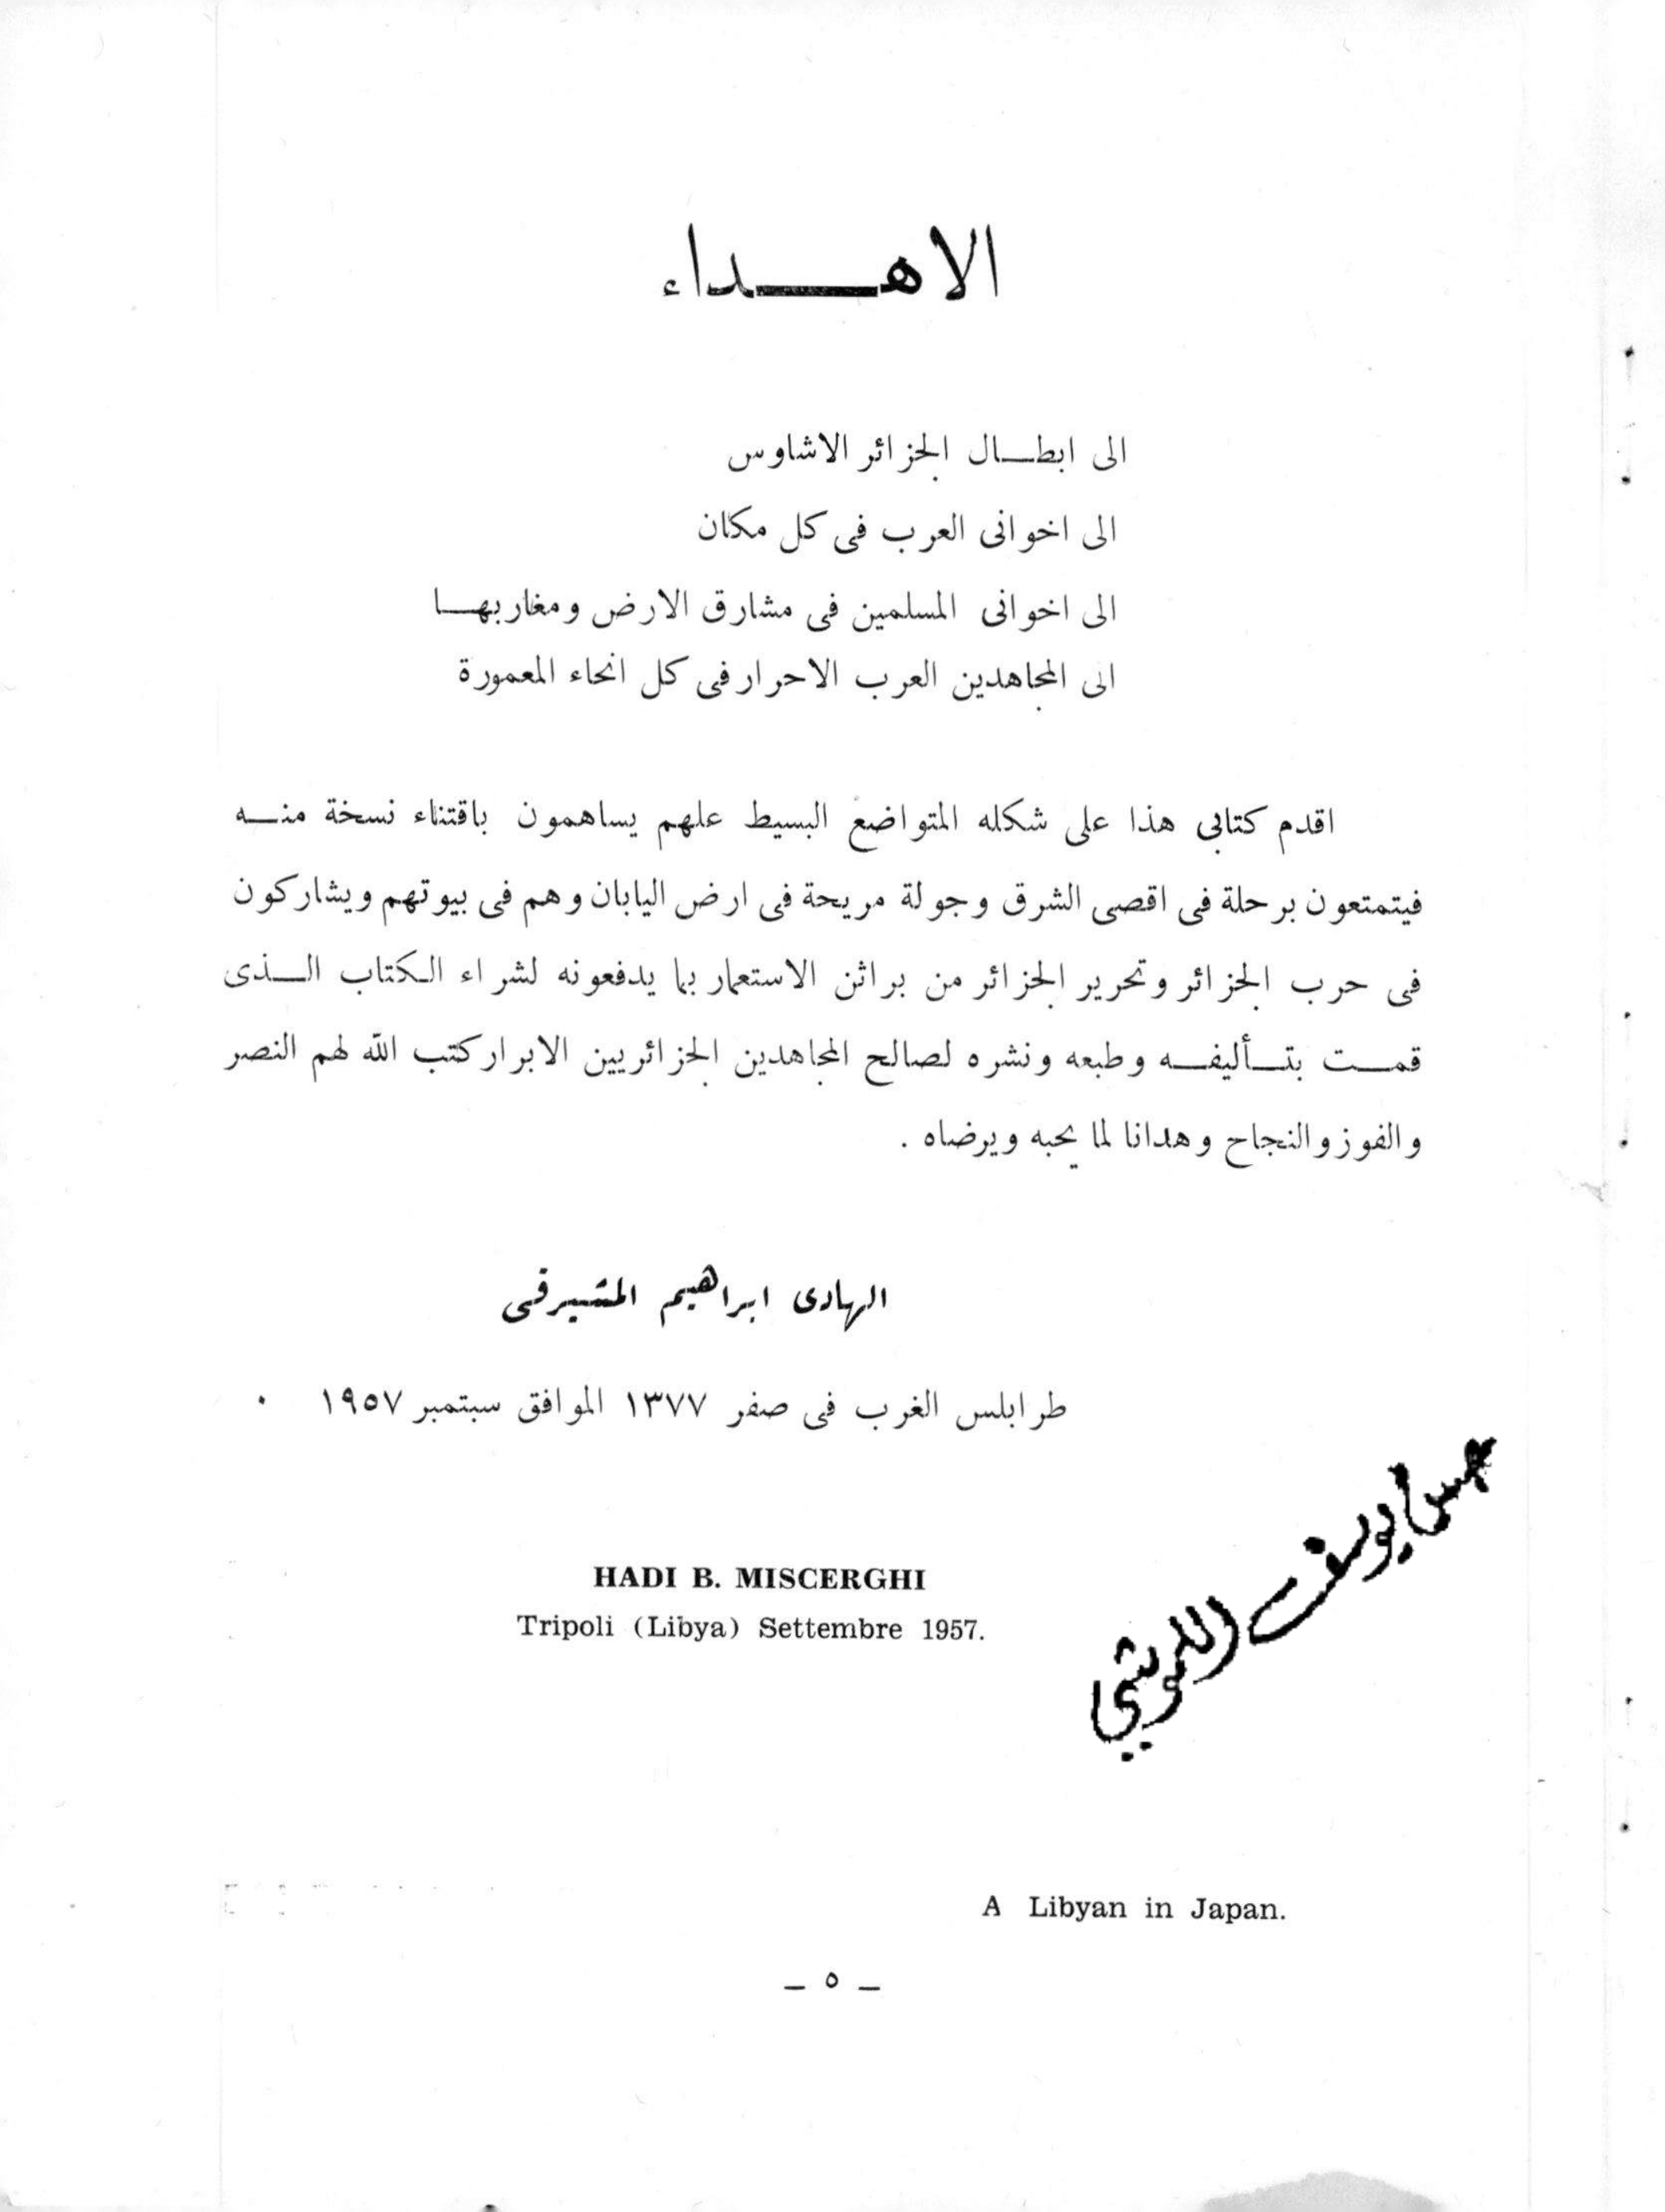 الاهـــداء
الى ابطـــال الجزائر الاشاوس
الى اخوانى العرب فى كل مكان
الى اخوانى المسلمين فى مشارق الارض ومغاربهـــا
الى المجاهدين العرب الاحرار فى كل انحاء المعمورة
اقدم كتابى هذا على شكله المتواضع البسيط علهم يساهمون باقتناء نسخة منـــه
فيتمتعون برحلة فى اقصى الشرق وجولة مريحة فى ارض اليابان وهم فى بيوتهم ويشاركون
فى حرب الجزائر وتحرير الجزائر من براثن الاستعمار بما يدفعونه لشراء الكتاب الـــذى
قمـــت بتـــأليفـــه وطبعه ونشره لصالح المجاهدين الجزائريين الابرار كتب الله لهم النصر
والفوز والنجاح وهدانا لما يحبه ويرضاه .
الهادى ابراهيم المشيرقى
طرابلس الغرب فى صفر ١٣٧٧ الموافق سبتمبر ١٩٥٧ ٠
يوسف
HADI B. MISCERGHI
Tripoli (Libya) Settembre 1957.
A Libyan in Japan.
– ٥ –